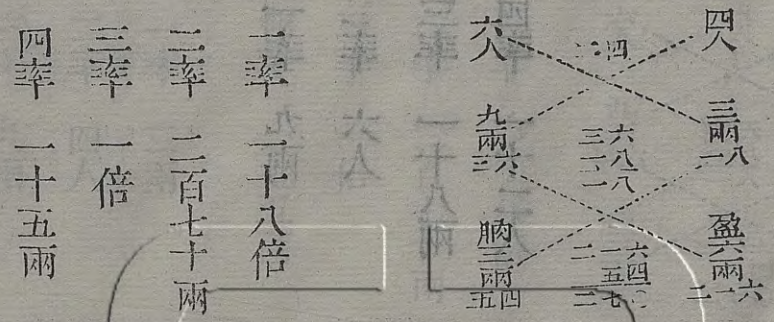 四人 三兩 一八 盈六兩 二一六
二四
三六
一八
一八
二一六
五四
二七〇
六人 九兩 三六 朒三兩 五四
一率 一十八倍
二率 二百七十兩
三率 一倍
四率 一十五兩